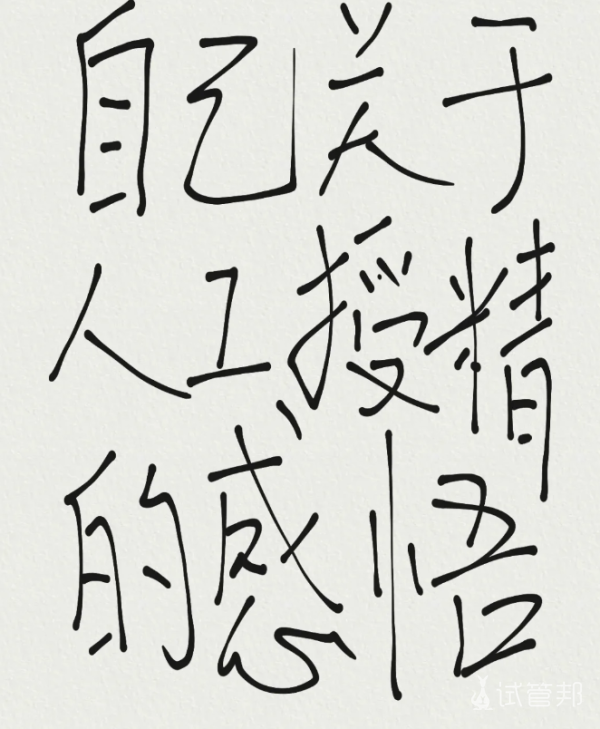 自己关于
人工授精
的感悟
试管邦